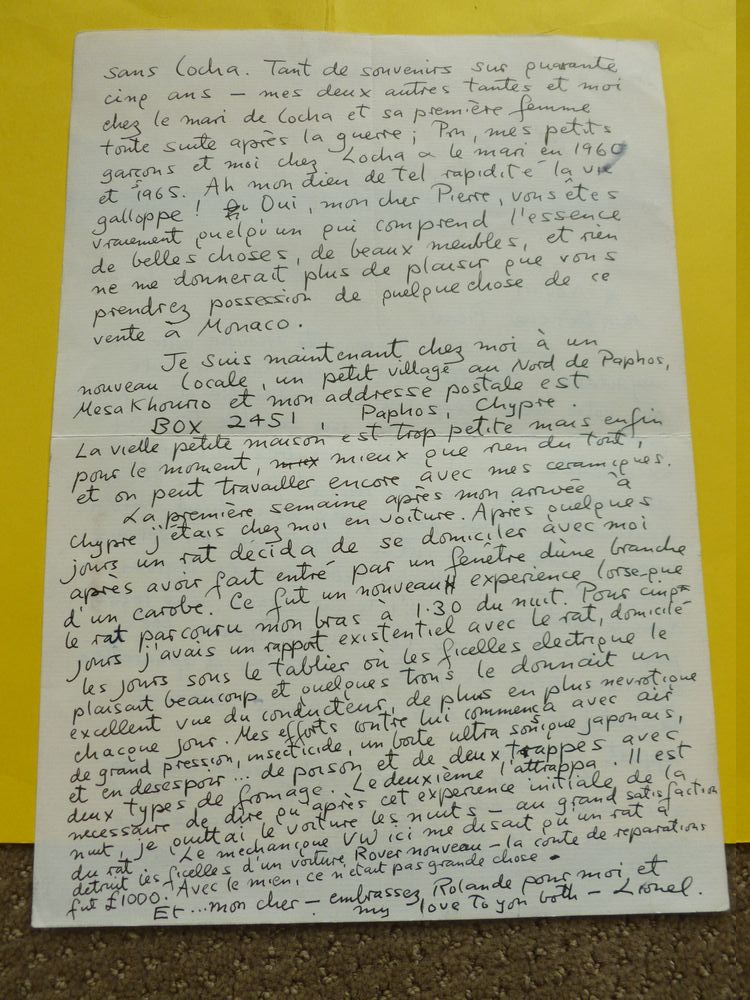 sans Cocha. Tant de souvenirs sur quarante
cinq ans – mes deux autres tantes et moi
chez le mari de Cocha et sa première femme
toute suite après la guerre ; Pru, mes petits
garçons et moi chez Cocha a le mari en 1960
et 1965. Ah mon dieu de tel rapidité la vie
galloppe ! Oui, mon cher Pierre, vous êtes
vraiement quelqu'un qui comprend l'essence
de belles choses, de beaux meubles, et rien
ne me donnerait plus de plaisir que vous
prendrez possession de quelque chose de ce
vente à Monaco.
Je suis maintenant chez moi à un
nouveau locale, un petit village au Nord de Paphos,
Mesa Khourio et mon addresse postale est
BOX 2451, Paphos, Chypre.
La vielle petite maison est trop petite mais enfin
pour le moment, miex mieux que rien du tout,
et on peut travailler encore avec mes ceramiques.
La première semaine après mon arrivée à
Chypre j'étais chez moi en voiture. Après quelques
jours un rat décida de se domiciler avec moi
après avoir fait entré par un fenêtre d'une branche
d'un carobe. Ce fut un nouveau experience lorsque
le rat parcouru mon bras à 1.30 du nuit. Pour cinq
jours j'avais un rapport existentiel avec le rat, domicilé
les jours sous le tablier où les ficelles electrique le
plaisait beaucoup et quelques trous le donnait un
excellent vue du conducteur, de plus en plus nevrotique
chacque jour. Mes efforts contre lui commença avec air
de grand pression, insecticide, un boite ultra sonique japonais,
et en desespoir... de poison et de deux trappes avec
deux types de fromage. Le deuxième l'attrappa. Il est
necessaire de dire qu après cet experience initiale de la
nuit, je quittai le voiture les nuits – au grand satisfaction
du rat. Le mechanique VW ici me disait qu'un rat a
detruit les ficelles d'un voiture, Rover nouveau – la conte de reparations
fut £1000. Avec le mien, ce n'etait pas grande chose.
Et ... mon cher – embrassez Rolande pour moi, et
my love to you both – Lionel.